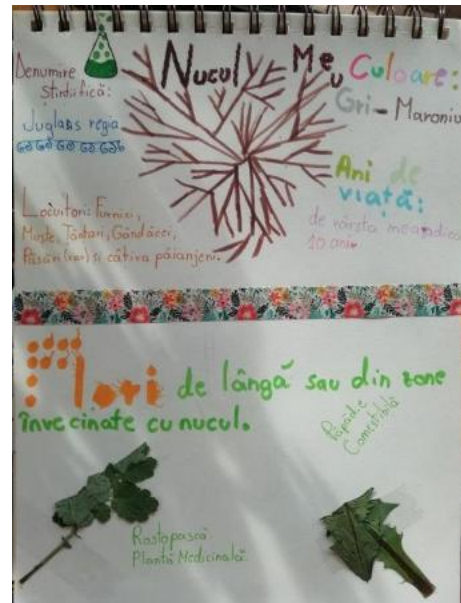 Nucul Meu
Denumire
Științifică:
Juglans regia
Culoare:
Gri-Maroniu
Ani de
viață:
de vârsta mea adică
10 ani.
Locuitori: Furnici,
Muște, Țânțari, Gândăcei,
Păsări (rar) și câțiva păianjeni.
Flori de lângă sau din zone
învecinate cu nucul.
Păpădie
Comestibilă
Rostopască
Plantă Medicinală